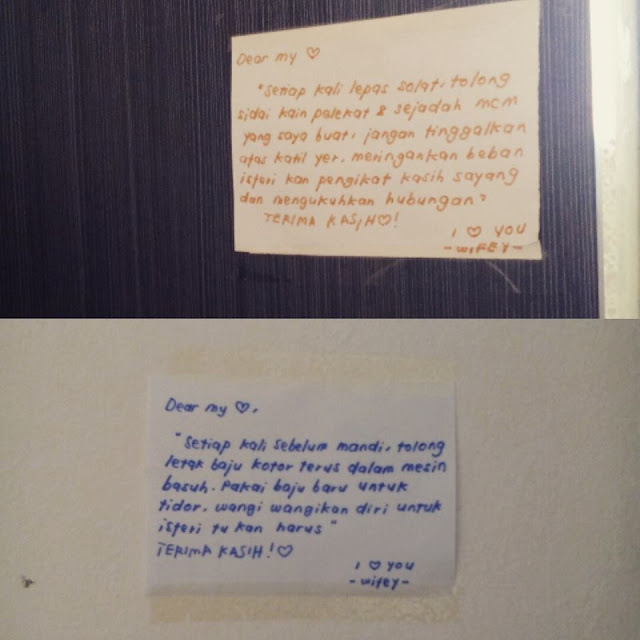 Dear my ♡
"Setiap kali lepas solat, tolong
sidai kain palekat & sejadah mcm
yang saya buat, jangan tinggalkan
atas katil yer. meringankan beban
isteri kan pengikat kasih sayang
dan mengukuhkan hubungan"
TERIMA KASIH♡!
I ♡ YOU
-WIFEY-
Dear my ♡,
"Setiap kali sebelum mandi, tolong
letak baju kotor terus dalam mesin
basuh. Pakai baju baru untuk
tidor, wangi wangikan diri untuk
isteri tu kan harus"
TERIMA KASIH!♡
I ♡ you
-wifey-